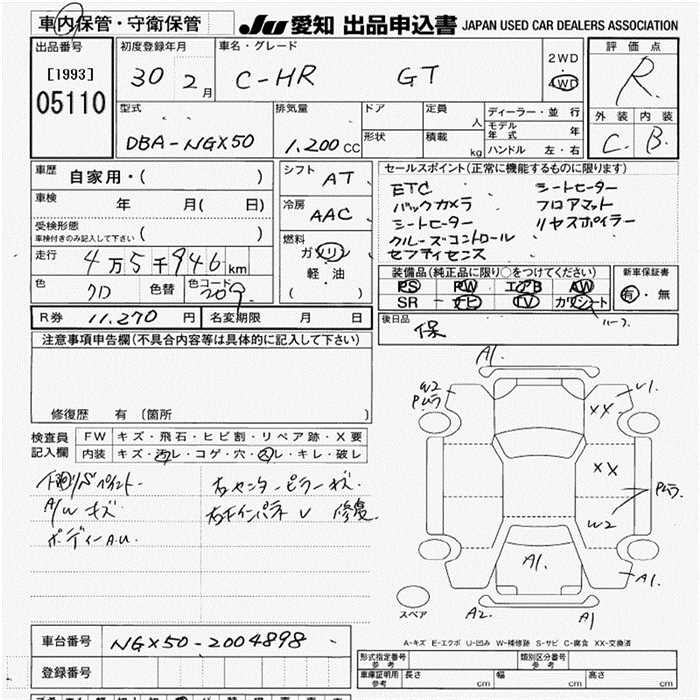 車内保管・守衛保管
JU 愛知 出品申込書 JAPAN USED CAR DEALERS ASSOCIATION
出品番号
[1993]
05110
初度登録年月
30 2月
車名・グレード
C-HR GT
2WD
4WD
評価点
R
外装 内装
C B
型式
DBA-NGX50
排気量
1.200cc
ドア
形状
定員 人
積載 kg
ディーラー・並行
モデル年式 年
ハンドル 左・右
車歴 自家用・( )
車検 年 月( 日)
受検形態
車検付きのみ記入して下さい ( )
走行 4万5千946km
色 クロ 色替 色コード 209
シフト AT
冷房 AAC
燃料
ガソリン
軽・油
( )
セールスポイント(正常に機能するものに限ります)
ETC シートヒーター
バックカメラ フロアマット
シートヒーター リヤスポイラー
クルーズコントロール
セフティセンス
装備品(純正品に限り○をつけてください) 新車保証書
PS PW エアB AW
SR ナビ TV カワシート
有・無
ハーフ
R券 11.270円 名変期限 月 日
後日品 保
注意事項申告欄(不具合内容等は具体的に記入して下さい)
修復歴 有(箇所 )
検査員記入欄
FW キズ・飛石・ヒビ割・リペア跡・X要
内装 キズ・汚レ・コゲ・穴・スレ・キレ・破レ
下廻リSペイント 右センターピラーキズ
A/Wキズ 右キインパネU 修復
ボディーA.U
A1.
W2
Pムラ
U1.
XX
XX
Pムラ
W2
A1.
A1.
A2.
A1
スペア
A-キズ E-エクボ U-凹み W-補修跡 S-サビ C-腐食 XX-交換済
車台番号 NGX50-2004898
登録番号
形式指定番号 参考
類別区分番号 参考
車庫証明用 参考 長さ cm 幅 cm 高さ cm